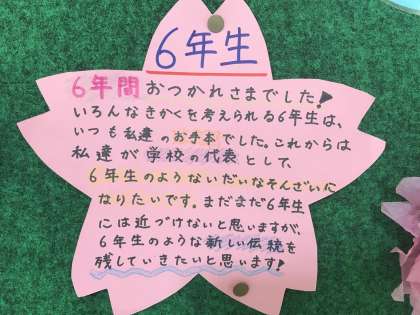 6年生
6年間おつかれさまでした!
いろんなきかくを考えられる6年生は、
いつも私達のお手本でした。これからは
私達が学校の代表として、
6年生のようないだいなそんざいに
なりたいです。まだまだ6年生
には近づけないと思いますが、
6年生のような新しい伝統を
残していきたいと思います!